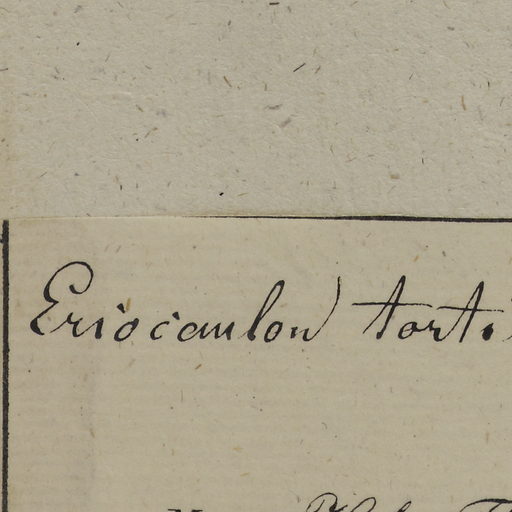 Eriocaulon torti